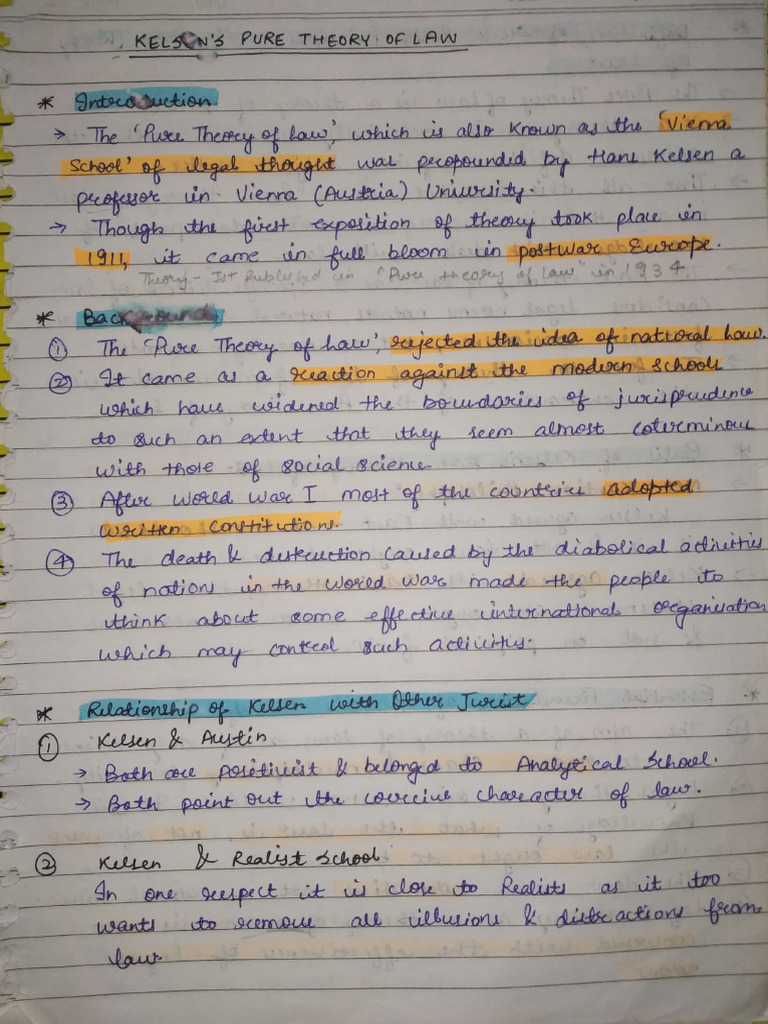 KELSEN'S PURE THEORY OF LAW
* Introduction
→ The 'Pure Theory of law', which is also known as the 'Vienna
School' of legal thought was propounded by Hans Kelsen a
professor in Vienna (Austria) University.
→ Though the first exposition of theory took place in
1911, it came in full bloom in postwar Europe.
Theory - Ist published in "Pure theory of law" in 1934
* Background
① The 'Pure Theory of Law', rejected the idea of natural law.
② It came as a reaction against the modern schools
which have widened the boundaries of jurisprudence
to such an extent that they seem almost coterminous
with those of social science.
③ After World War I most of the countries adopted
written constitutions.
④ The death & destruction caused by the diabolical activities
of nations in the World War made the people to
think about some effective international organisation
which may control such activities.
* Relationship of Kelsen with Other Jurist
① Kelsen & Austin
→ Both are positivist & belonged to Analytical School.
→ Both point out the coercive character of law.
② Kelsen & Realist School
In one respect it is close to Realists as it too
wants to remove all illusions & distractions from
law